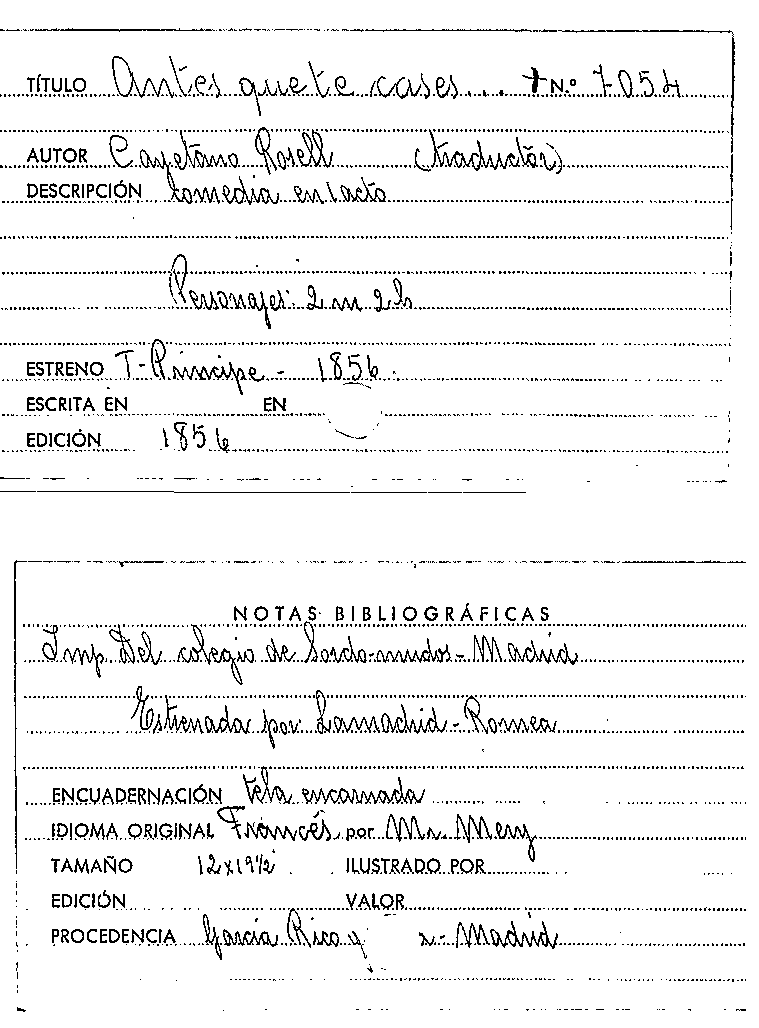 TÍTULO Antes que te cases... + N.º 7054
AUTOR Cayetano Rosell (traductor)
DESCRIPCIÓN Comedia en 1 acto
Personajes: 2 m 2 h
ESTRENO T- Principe - 1856.
ESCRITA EN EN
EDICIÓN 1856
NOTAS BIBLIOGRÁFICAS
Imp. Del colegio de Sordo-mudos - Madrid
Estrenada por: Lamadrid - Romea
ENCUADERNACIÓN tela encarnada
IDIOMA ORIGINAL Francés por Mr. Mery
TAMAÑO 12x19½ ILUSTRADO POR
EDICIÓN VALOR
PROCEDENCIA García Rico y - Madrid